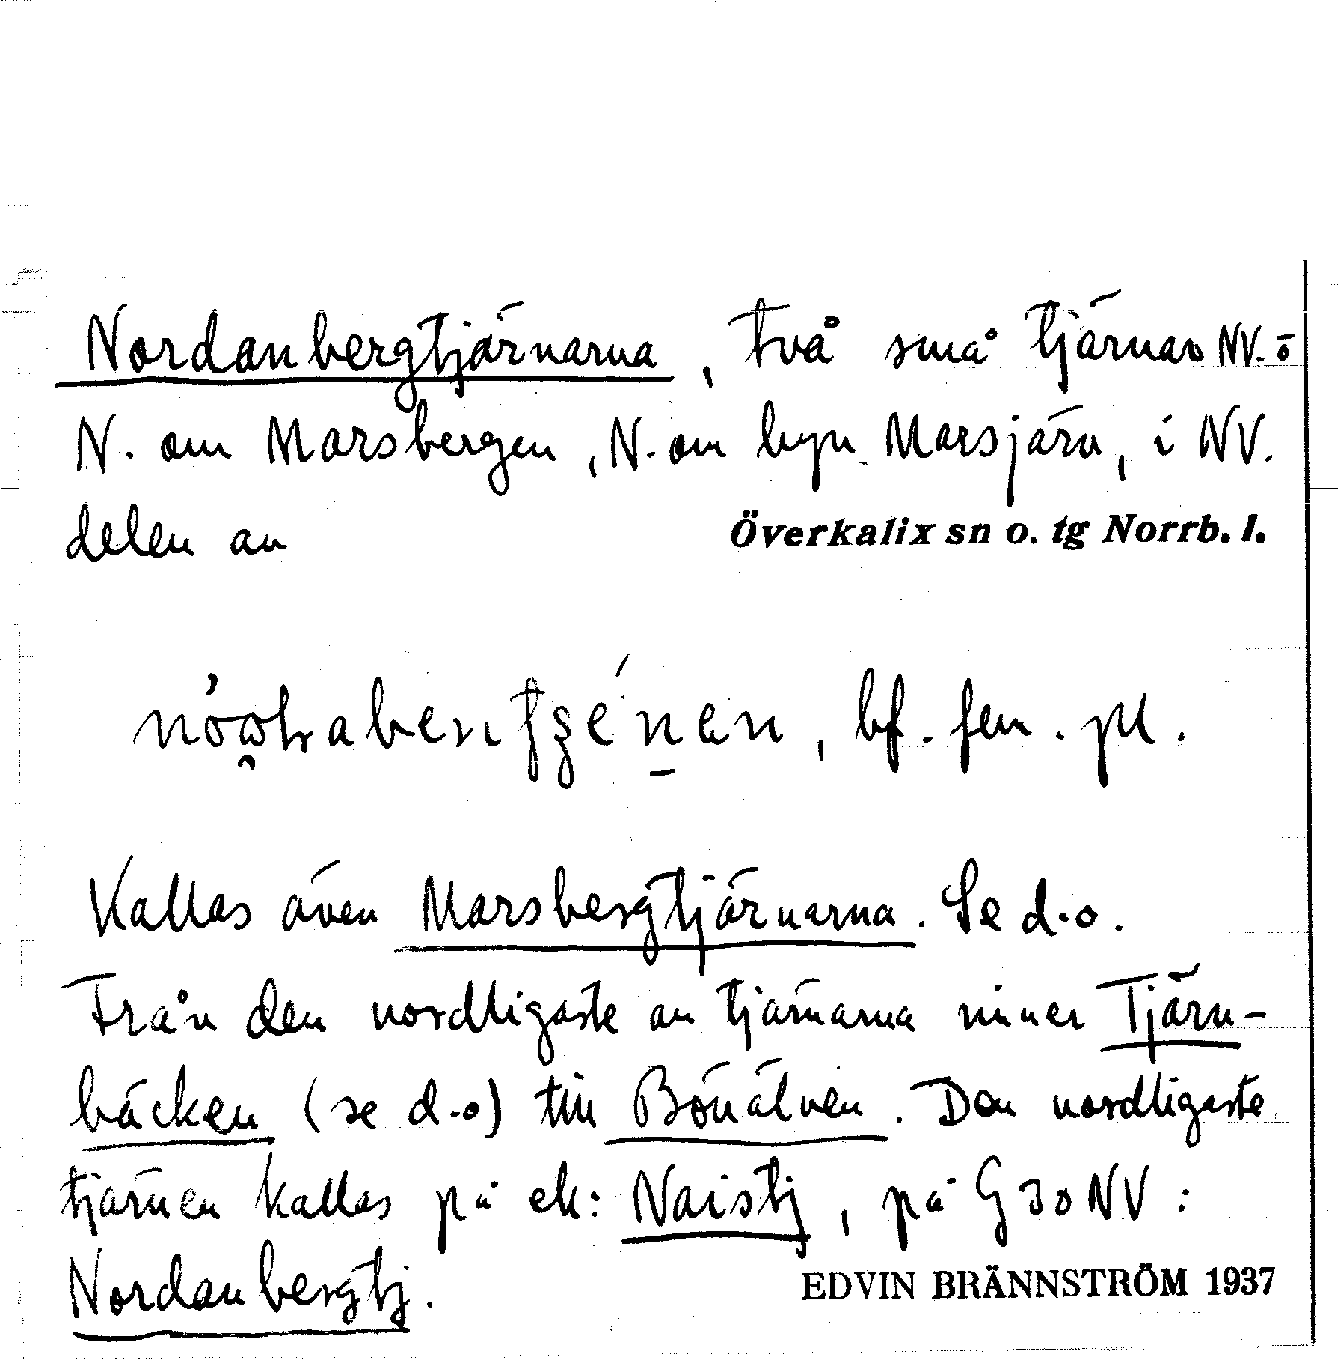 Nordanbergtjärnarna, två små tjärnar NV. o
N. om Marsbergen, N. om byn Marsjärn, i NV.
delen av Överkalix sn o. tg Norrb. l.
bf. fem. pl.
Kallas även Marsbergtjärnarna. Se d.o.
Från den nordligaste av tjärnarna rinner Tjärn-
bäcken (se d.o) till Bönälven. Den nordligaste
tjärnen kallas på ek: Naistj, på G 30 NV:
Nordanbergtj. EDVIN BRÄNNSTRÖM 1937